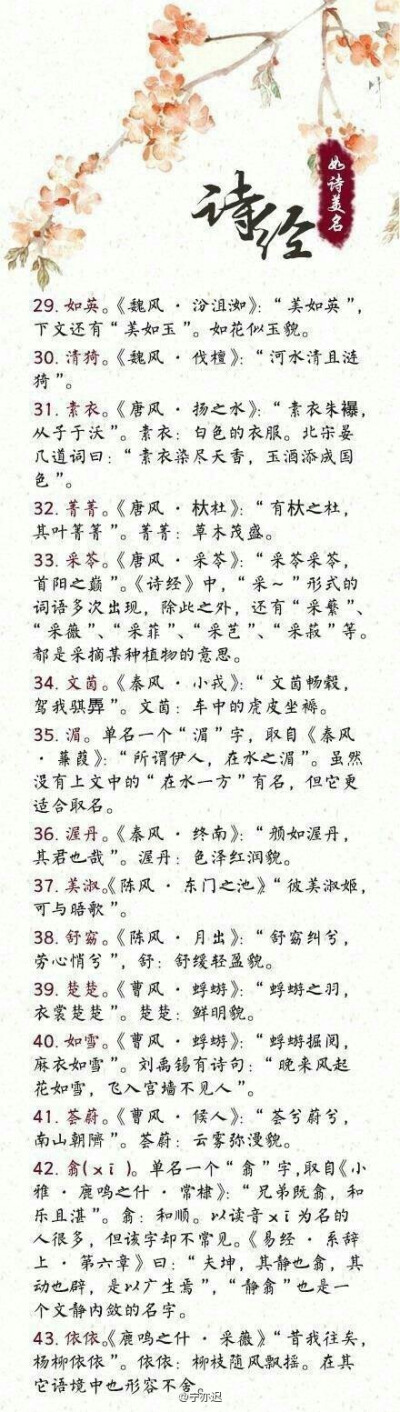 诗经
如诗美名
29. 如英。《魏风 · 汾沮洳》：“美如英”，
下文还有“美如玉”。如花似玉貌。
30. 清猗。《魏风 · 伐檀》：“河水清且涟
猗”。
31. 素衣。《唐风 · 扬之水》：“素衣朱襮，
从子于沃”。素衣：白色的衣服。北宋晏
几道词曰：“素衣染尽天香，玉酒添成国
色”。
32. 菁菁。《唐风 · 杕杜》：“有杕之杜，
其叶菁菁”。菁菁：草木茂盛。
33. 采苓。《唐风 · 采苓》：“采苓采苓，
首阳之巅”。《诗经》中，“采～”形式的
词语多次出现，除此之外，还有“采蘩”、
“采薇”、“采菲”、“采芑”、“采菽”等。
都是采摘某种植物的意思。
34. 文茵。《秦风 · 小戎》：“文茵畅毂，
驾我骐馵”。文茵：车中的虎皮坐褥。
35. 湄。单名一个“湄”字，取自《秦风
· 蒹葭》：“所谓伊人，在水之湄”。虽然
没有上文中的“在水一方”有名，但它更
适合取名。
36. 渥丹。《秦风 · 终南》：“颜如渥丹，
其君也哉”。渥丹：色泽红润貌。
37. 美淑。《陈风 · 东门之池》“彼美淑姬，
可与晤歌”。
38. 舒窈。《陈风 · 月出》：“舒窈纠兮，
劳心悄兮”，舒：舒缓轻盈貌。
39. 楚楚。《曹风 · 蜉蝣》：“蜉蝣之羽，
衣裳楚楚”。楚楚：鲜明貌。
40. 如雪。《曹风 · 蜉蝣》：“蜉蝣掘阅，
麻衣如雪”。刘禹锡有诗句：“晚来风起
花如雪，飞入宫墙不见人”。
41. 荟蔚。《曹风 · 候人》：“荟兮蔚兮，
南山朝隮”。荟蔚：云雾弥漫貌。
42. 翕(xī)。单名一个“翕”字,取自《小
雅 · 鹿鸣之什 · 常棣》：“兄弟既翕，和
乐且湛”。翕：和顺。以读音xī为名的
人很多，但该字却不常见。《易经 · 系辞
上 · 第六章》曰：“夫坤，其静也翕，其
动也辟，是以广生焉”，“静翕”也是一
个文静内敛的名字。
43. 依依。《鹿鸣之什 · 采薇》“昔我往矣，
杨柳依依”。依依：柳枝随风飘摇。在其
它语境中也形容不舍。
@宁亦迟